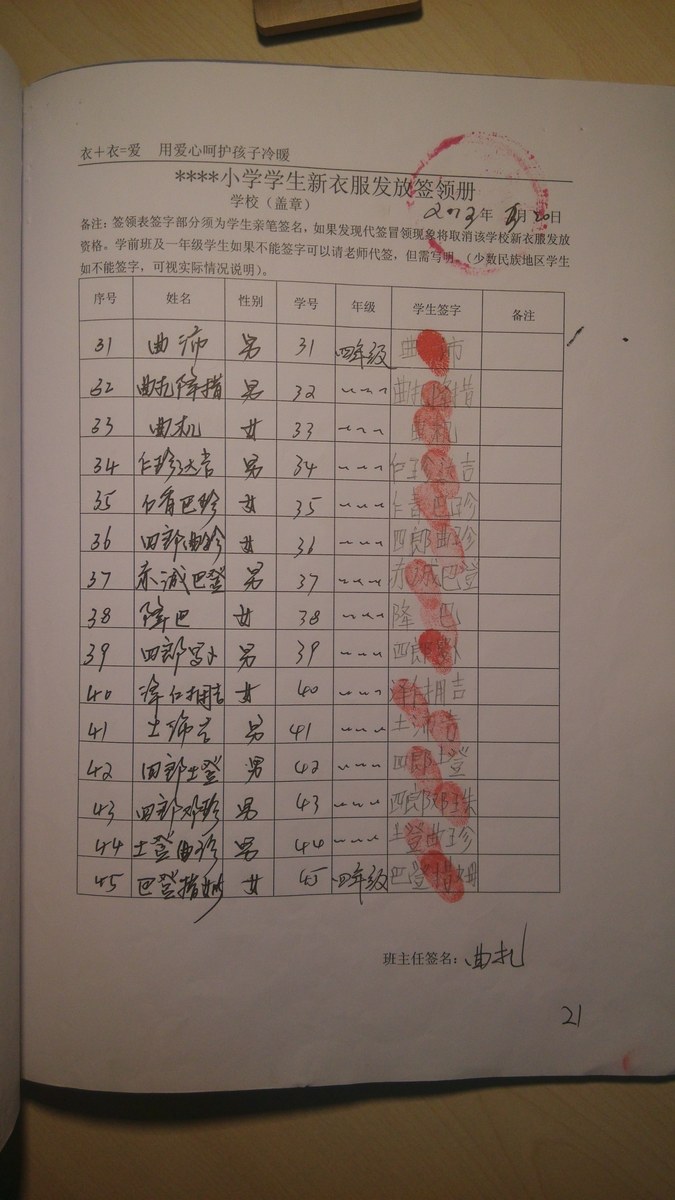 衣＋衣=爱 用爱心呵护孩子冷暖
****小学学生新衣服发放签领册
学校（盖章） 2013年 月20日
备注：签领表签字部分须为学生亲笔签名，如果发现代签冒领现象将取消该学校新衣服发放
资格。学前班及一年级学生如果不能签字可以请老师代签，但需写明。（少数民族地区学生
如不能签字，可视实际情况说明）。
序号 姓名 性别 学号 年级 学生签字 备注
31 曲沛 男 31 四年级 曲
32 曲扎降措 男 32 曲扎降措
33 曲机 女 33 曲机
34 仁珍达吉 男 34 仁珍达吉
35 巴珍 女 35 巴珍
36 四郎曲珍 女 36 四郎曲珍
37 赤诚巴登 男 37 赤诚巴登
38 降巴 女 38 降巴
39 四郎 男 39 四郎
40 泽仁拥吉 女 40 泽仁拥吉
41 土沛吉 男 41 土沛吉
42 四郎土登 男 42 四郎土登
43 四郎邓珍 男 43 四郎邓珠
44 土登曲珍 男 44 土登曲珍
45 巴登措姆 女 45 四年级 巴登措姆
班主任签名：曲扎
21